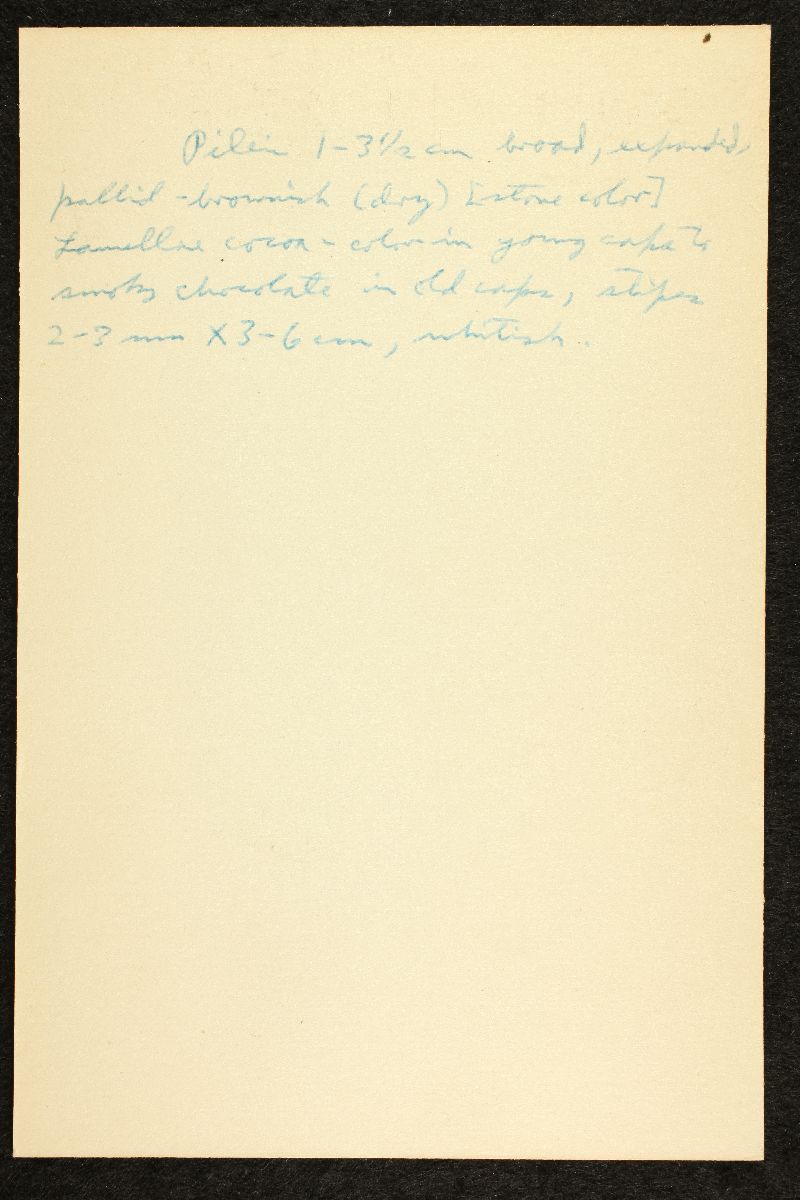 Pilei 1-3½ cm broad, expanded,
pallid-brownish (dry) [stone color]
Lamellae cocoa-color in young caps to
smoky chocolate in old caps, stipes
2-3 mm X 3-6 cm, whitish.